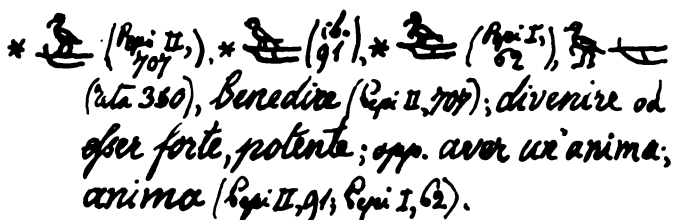 * (Pepi II, 707), * (ib. 91), * (Pepi I, 62),
360), Benedire (Pepi II, 707); divenire od
esser forte, potente; opp. aver un'anima;
anima (Pepi II, 91; Pepi I, 62).